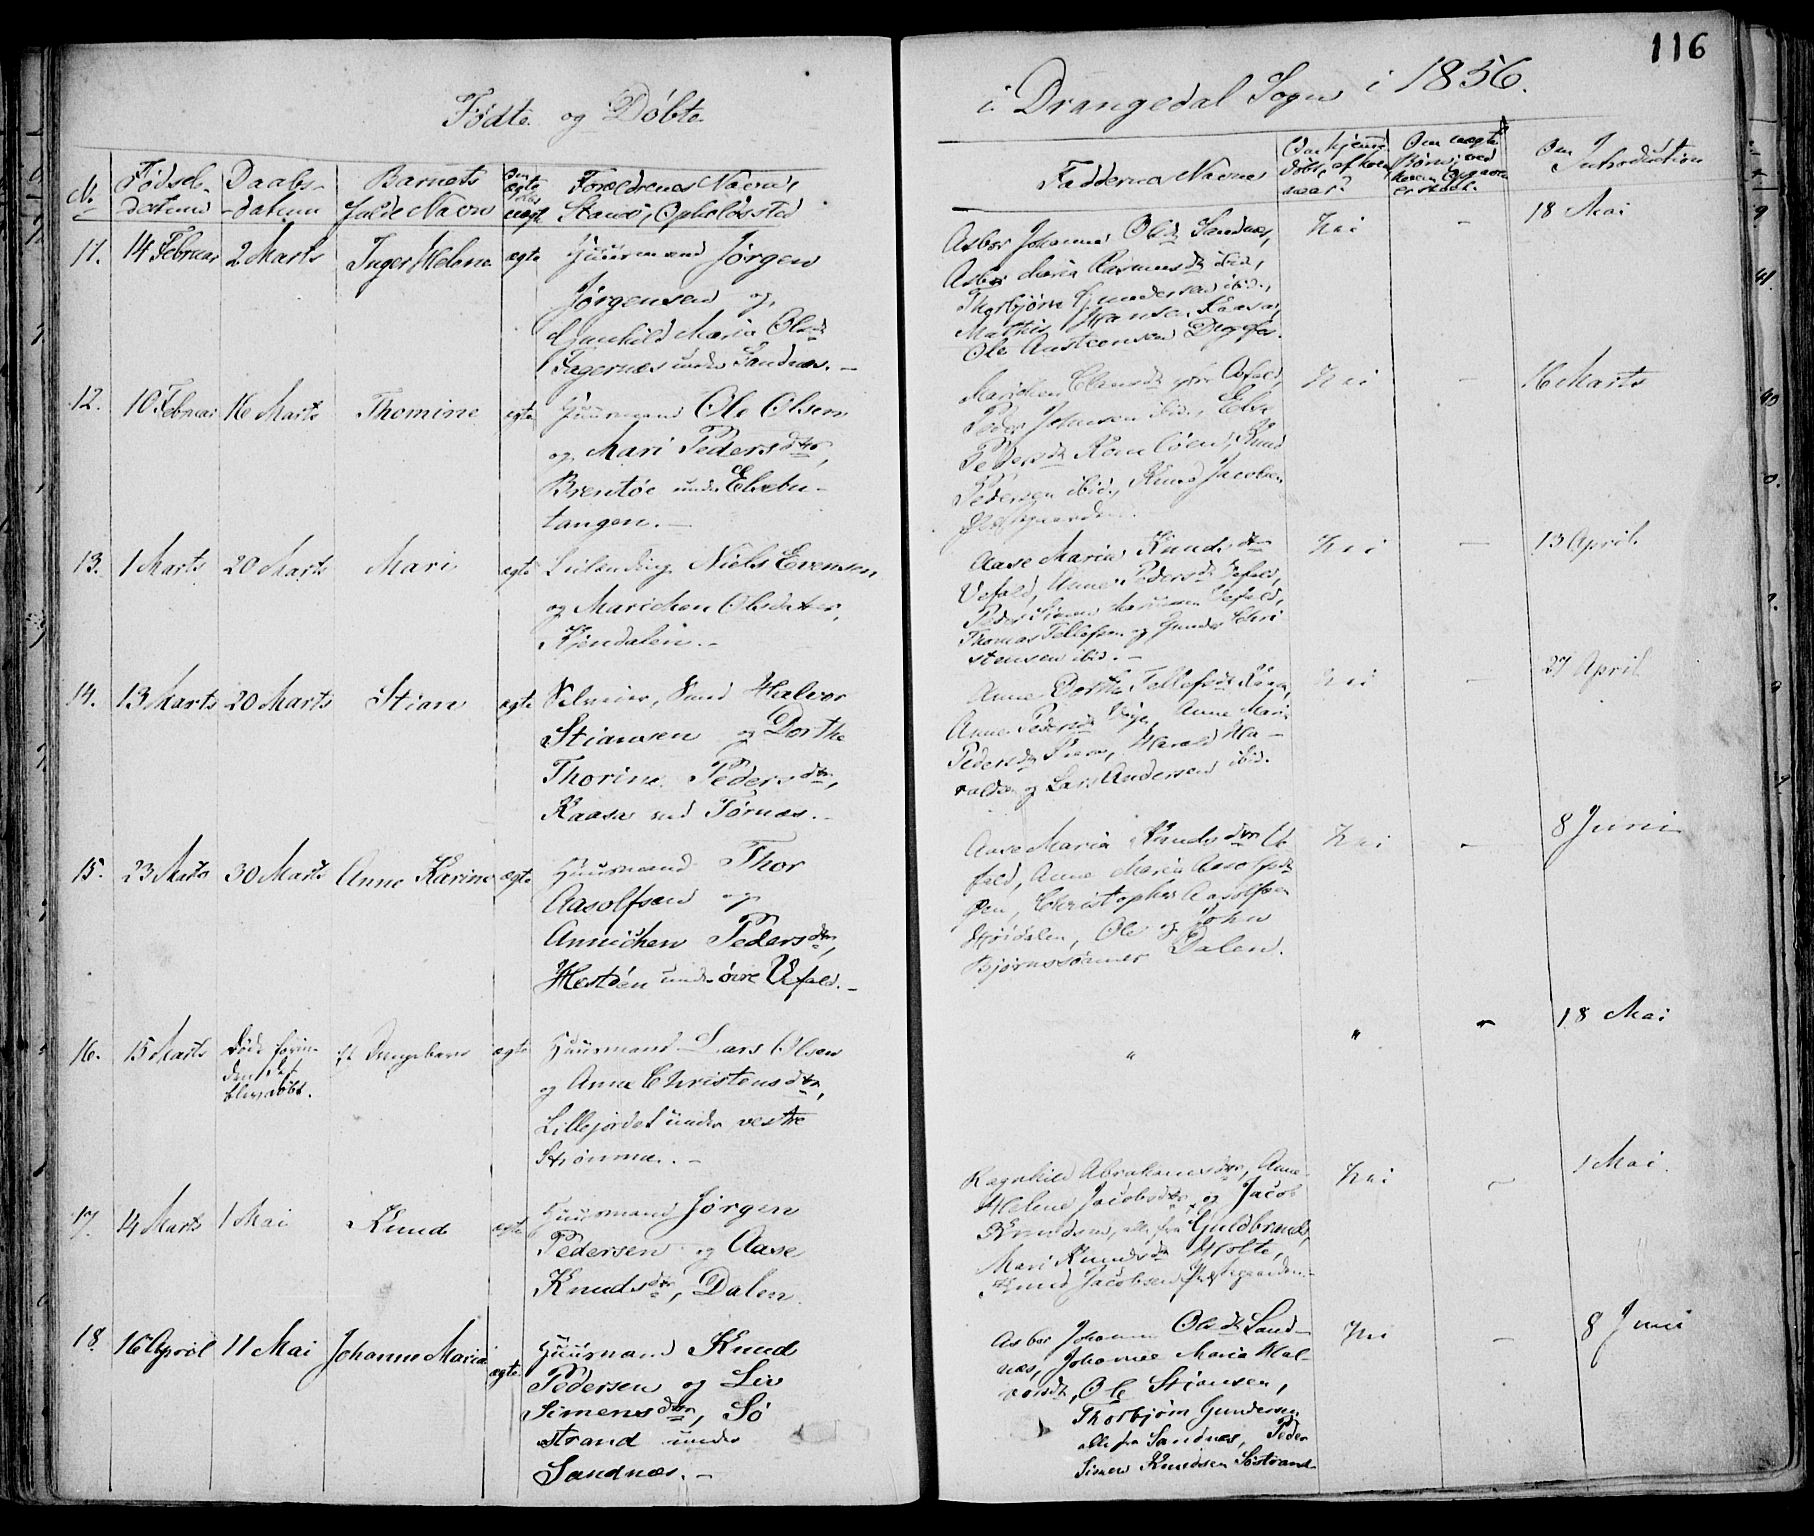 116
Fødte og Døbte
i Drangedal Sogn i 1856.
No
Fødsels-
datum
Daabs-
datum
Barnets
fulde Navn
Om
ægte
eller
uægte
Forældrenes Navne,
Stand, Opholdssted
Faddernes Navne
Om hjemme-
døbt, af hvem
naar?
Om Introduction
11.
14 Februar
2 Marts
Inger Helene
ægte
Huusmand Jørgen
Jørgensen og
Gunhild Maria Olsdr
Fagernæs under Sandnæs. -
Asbør Johanne Olsdr Sandnæs,
Asbør Maria Rasmusdr ibid,
Thorbjørn Gundersen ibid.,
Mathis Hansen Kaasa,
Ole Austensen
Nei
-
18 Mai
12.
10 Februar
16 Marts
Thomine
ægte
Huusmand Ole Olsen
og Mari Pedersdtr,
Brentøe under Elsebu-
tangen. -
Peder Johansen ibid, Else
Pedersdr
Pedersen ibid, Knud Jacobsen
Nei
-
16 Marts
13.
1 Marts
20 Marts
Mari
ægte
Leilending Niels Evensen
og Marichen Olsdatter,
Kjendalen. -
Aase Maria Knudsdtr
Vefald, Anne Pedersdr Vefald,
Peder Simen Vefald,
Thomas Tellefsen og Gunder Chri
stensen ibid. -
Nei
-
13 April
14.
13 Marts
20 Marts
Stian
ægte
Selveier, Halvor
Stiansen og Dorthe
Thorine Pedersdtr,
Kaasa ved Tørnæs. -
Anne Dorthe Tellefsdr
Anne Pedersdr Anne Mari
Pedersdr Harald Ha-
raldsen og Lars Andersen ibid.
Nei
-
27 April
15.
23 Marts
30 Marts
Anne Karine
ægte
Huusmand Thor
Aasolfsen og
Annichen Pedersdtr,
Hestøen under øvre Ufald. -
Aase Maria Knudsdtr U
fald, Anne Maria Aasolfsdr
Øen, Christopher Aasolfsen
Høidalen, Ole og John
Bjørnssønner Dalen.
Nei
-
8 Juni
16.
15 Marts
Døde forin-
den det
blev døbt.
et Drengebarn
ægte
Huusmand Lars Olsen
og Anne Christensdtr,
Lillejordet under vestre
Strømme. -
"
"
-
18 Mai
17.
14 Marts
1 Mai
Knud
ægte
Huusmand Jørgen
Pedersen og Aase
Knudsdtr, Dalen
Ragnhild Abrahamsdtr, Anne
Helene Jacobsdtr og Jacob
Knudsen, alle fra
Mari Knudsdr Holte,
Knud Jacobsen
Nei
-
1 Mai.
18.
16 April
11 Mai
Johanne Maria
ægte
Huusmand Knud
Pedersen og Liv
Simensdtr, Sø
strand under
Sandnæs. -
Asbør Johanne Olsdr Sand-
næs, Johanne Maria Hal-
vorsdr, Ole Stiansen,
Thorbjørn Gundersen
alle fra Sandnæs, Peder
Simen Knudsen Søstrand
Nei
-
8 Juni